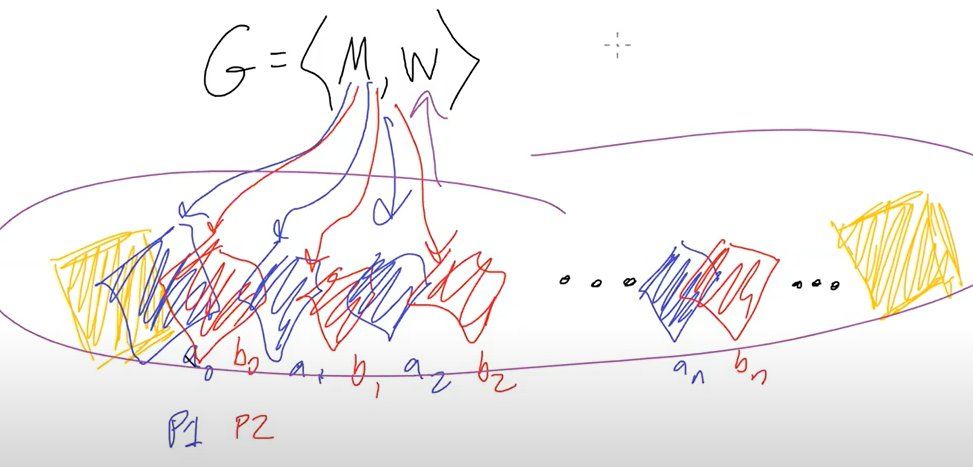 G = ⟨M, W⟩
a₀ b₀ a₁ b₁ a₂ b₂ ... aₙ bₙ ...
P1 P2